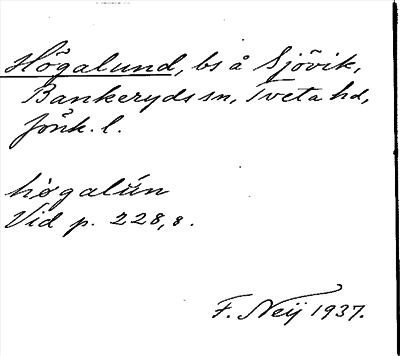 Högalund, bs å Sjövik,
Bankeryds sn, Tveta hd,
Jönk. l.
høgalún
Vid p. 228,8.
F. Neij 1937.